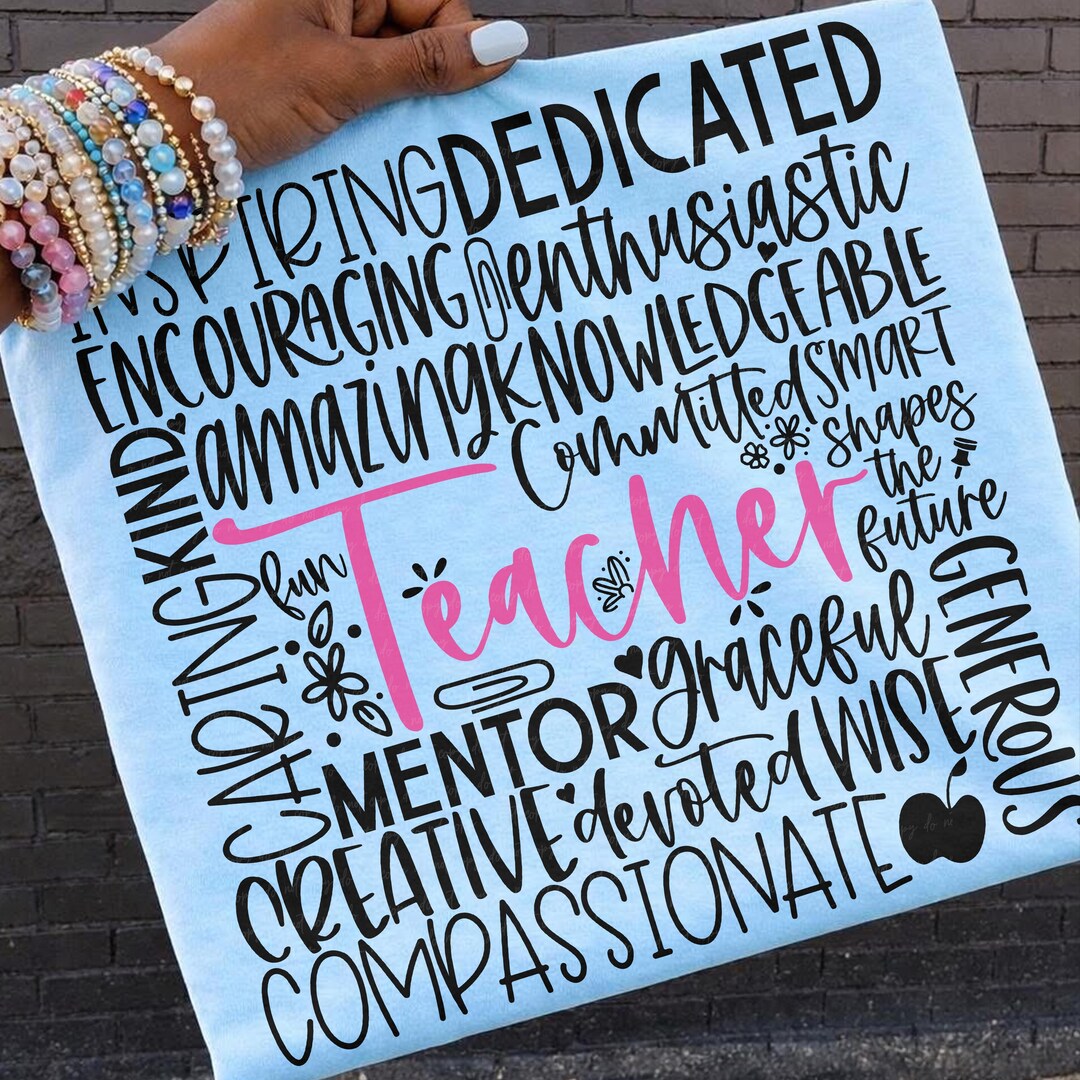 INSPIRING DEDICATED
ENCOURAGING enthusiastic
amazing KNOWLEDGEABLE
KIND
Committed SMART
shapes
the
future
Teacher
fun
CARING
GENEROUS
MENTOR graceful
CREATIVE devoted WISE
COMPASSIONATE